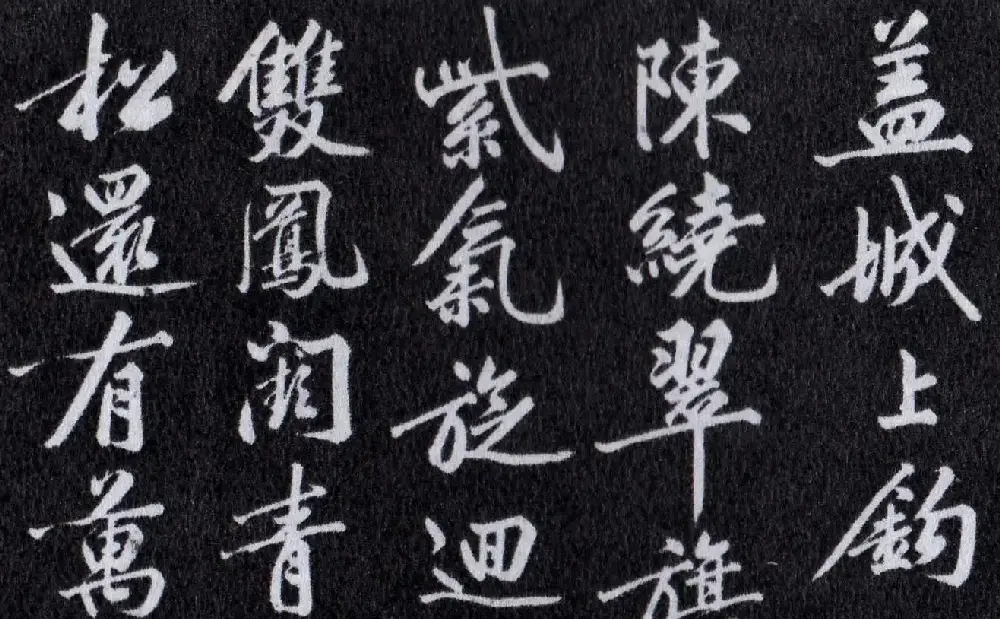 盖城上鈎
陳繞翠旗
紫氣旋迴
雙鳳闕青
松還有萬